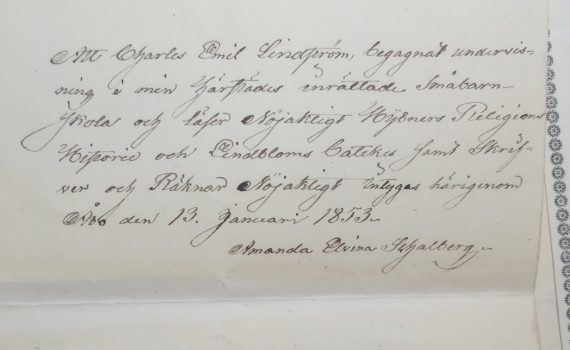 Att Charles Emil Lindström, begagnat undervis-
ning i min härstädes inrättade Småbarn-
Skola och läser Nöjaktigt Hÿbners Religions
Historie och Lindbloms Catekes samt Skrif-
ver och Räknar Nöjaktigt intygas härigenom
Åbo den 13. Januari 1853.
Amanda Elvira